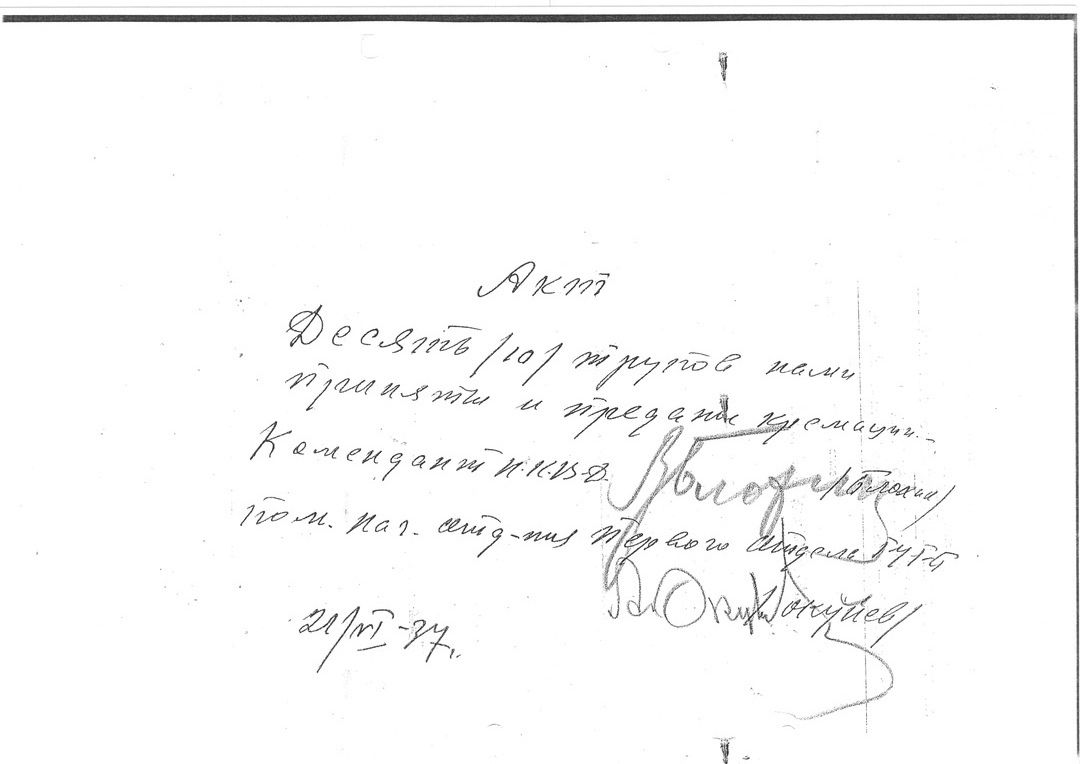 Акт
Десять /10/ трупов нами
приняты и преданы кремации. –
Комендант Н.К.В.Д. В Блохин /Блохин/
Пом. нач. отд-ния Первого отдела ГУГБ
Окун /Окунев/
21/VI-37.